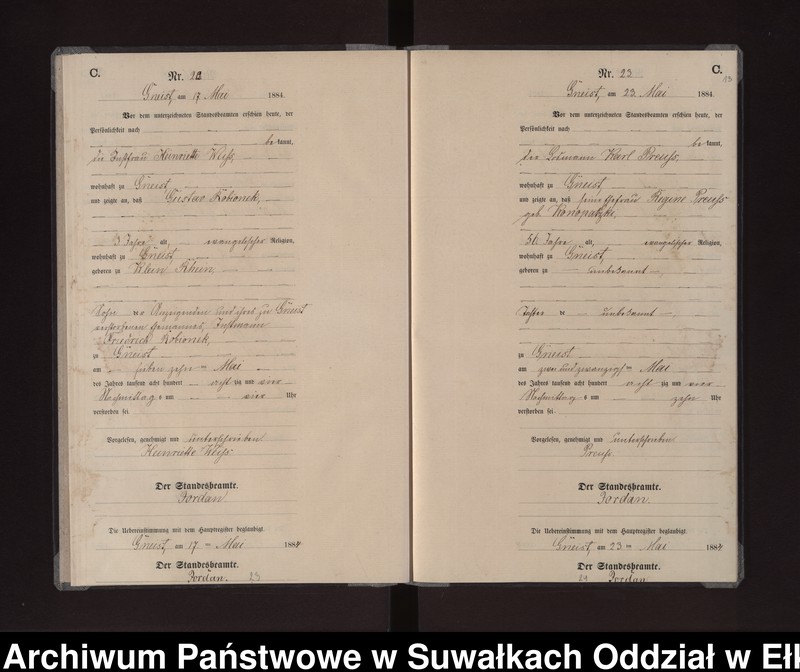 C.
Nr. 22
Gneist, am 17 Mai 1884.
Vor dem unterzeichneten Standesbeamten erschien heute, der
Persönlichkeit nach
bekannt,
die Henriette Weiss,
wohnhaft zu Gneist,
und zeigte an, daß Gustav Robionek,
3 Jahre alt, evangelischer Religion,
wohnhaft zu Gneist,
geboren zu Klein
Sohn der Anzeigenden und ihres zu Gneist
verstorbenen Ehemannes,
Friedrich Robionek,
zu Gneist
am sieben zehn ten Mai
des Jahres tausend acht hundert acht zig und vier
Nachmittags um vier Uhr
verstorben sei.
Vorgelesen, genehmigt und unterschrieben
Henriette Weiss
Der Standesbeamte.
Jordan.
Die Uebereinstimmung mit dem Hauptregister beglaubigt.
Gneist, am 17. ten Mai 1884
Der Standesbeamte.
Jordan. 23
C.
13
Nr. 23
Gneist, am 23. Mai 1884.
Vor dem unterzeichneten Standesbeamten erschien heute, der
Persönlichkeit nach
bekannt,
der Karl Preuss,
wohnhaft zu Gneist,
und zeigte an, daß seine Ehefrau Regine Preuss
geb Konopatzki,
Jahre alt, evangelischer Religion,
wohnhaft zu Gneist,
geboren zu unbekannt
Tochter unbekannt
zu Gneist
am zwei und zwanzigsten Mai
des Jahres tausend acht hundert acht zig und vier
Nachmittags um zehn Uhr
verstorben sei.
Vorgelesen, genehmigt und unterschrieben
Preuss
Der Standesbeamte.
Jordan.
Die Uebereinstimmung mit dem Hauptregister beglaubigt.
Gneist, am 23. ten Mai 1884
Der Standesbeamte.
24 Jordan
Archiwum Państwowe w Suwałkach Oddział w Eł